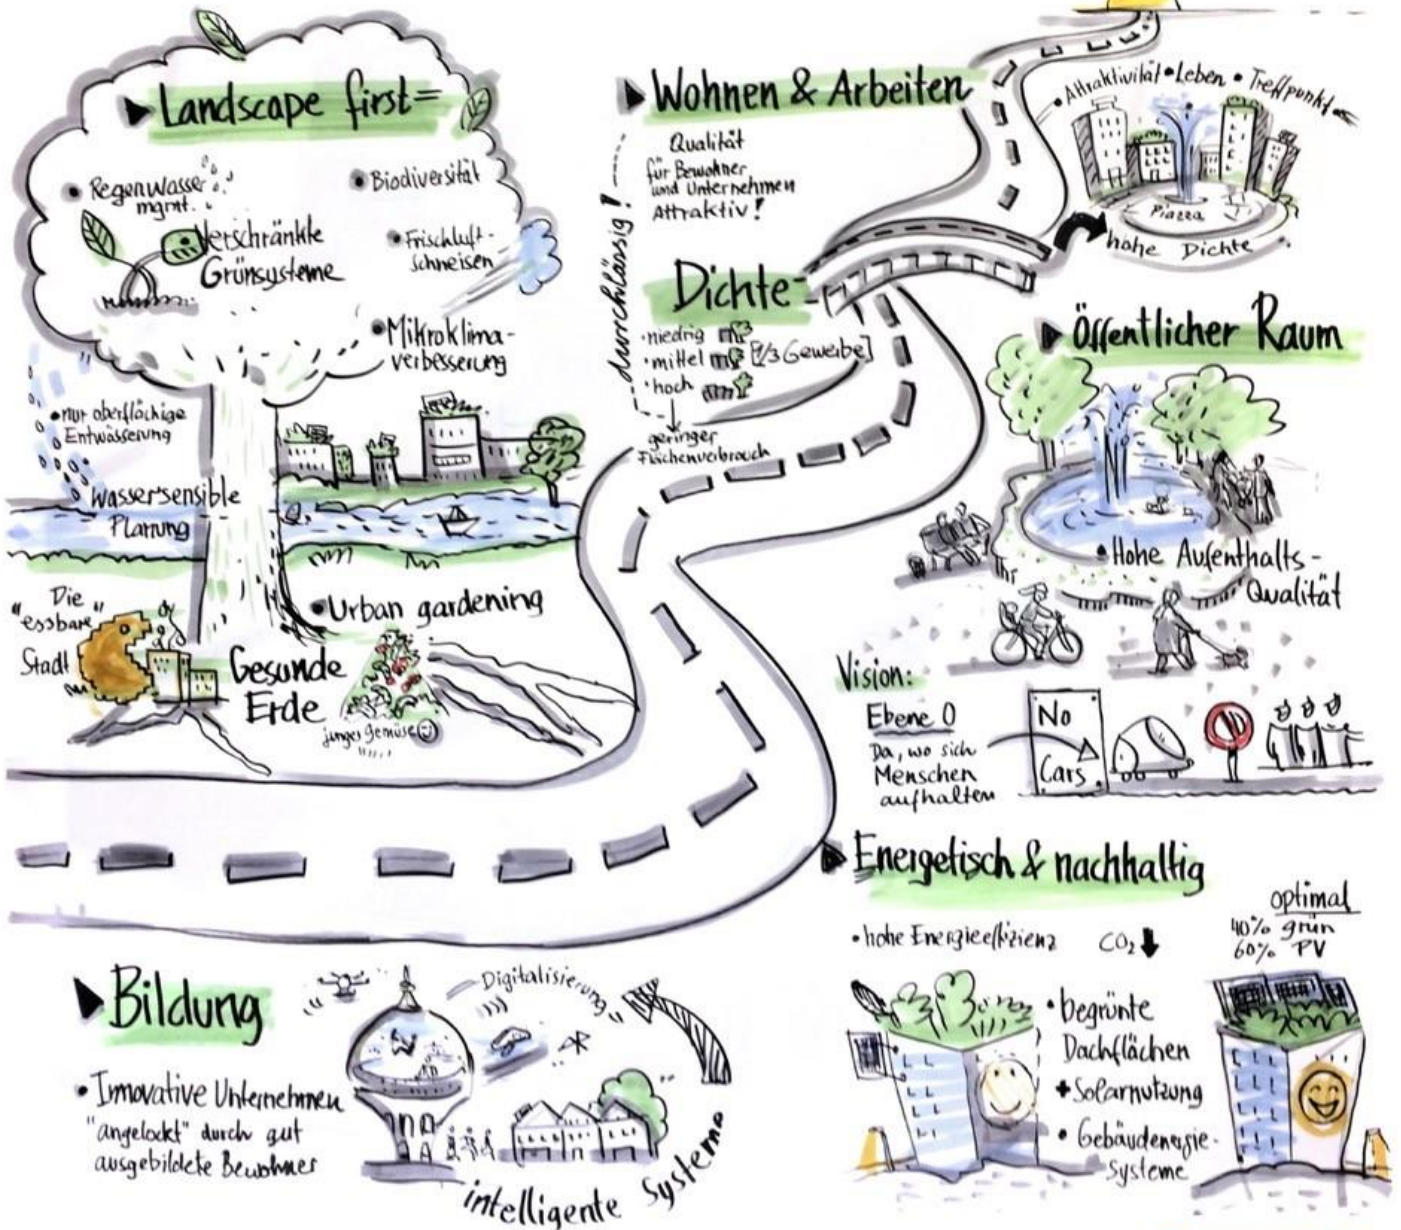 Landscape first=
• Regenwasser
mgmt.
• Biodiversität
Verschränkte
Grünsysteme
• Frischluft-
schneisen
• Mikroklima-
verbesserung
• nur oberflächige
Entwässerung
Wassersensible
Planung
Die
"essbare"
Stadt
• Urban gardening
Gesunde
Erde
junges Gemüse
Wohnen & Arbeiten
Qualität
für Bewohner
und Unternehmen
Attraktiv!
durchlässig!
Dichte
• niedrig
• mittel [1/3 Gewerbe]
• hoch
geringer
Flächenverbrauch
• Attraktivität • Leben • Treffpunkt
Piazza
hohe Dichte
Öffentlicher Raum
• Hohe Aufenthalts-
Qualität
Vision:
Ebene 0
Da, wo sich
Menschen
aufhalten
No
Cars
Energetisch & nachhaltig
• hohe Energieeffizienz CO₂
optimal
40% grün
60% PV
• begrünte
Dachflächen
+ Solarnutzung
• Gebäudenergie-
systeme
Bildung
• Innovative Unternehmen
"angelockt" durch gut
ausgebildete Bewohner
"Digitalisierung"
intelligente Systeme